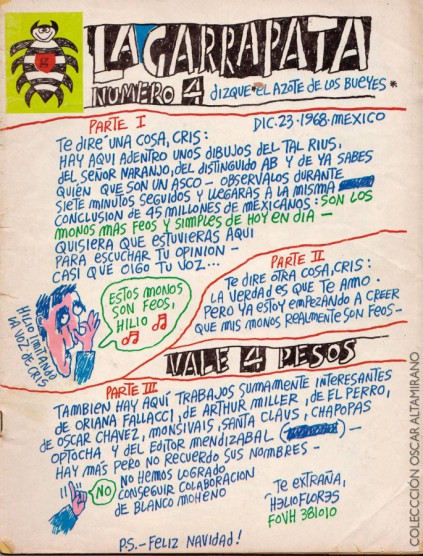 g
LA GARRAPATA
NUMERO 4 DIZQUE "EL AZOTE DE LOS BUEYES"
PARTE I
DIC. 23 · 1968 · MEXICO
Te DIRE UNA COSA, CRIS:
HAY AQUI ADENTRO UNOS DIBUJOS DEL TAL RIUS,
DEL SEÑOR NARANJO, DEL DISTINGUIDO AB Y DE YA SABES
QUIEN QUE SON UN ASCO - OBSERVALOS DURANTE
SIETE MINUTOS SEGUIDOS Y LLEGARAS A LA MISMA
CONCLUSION DE 45 MILLONES DE MEXICANOS: SON LOS
MONOS MAS FEOS Y SIMPLES DE HOY EN DIA -
QUISIERA QUE ESTUVIERAS AQUI
PARA ESCUCHAR TU OPINION -
CASI QUE OIGO TU VOZ...
HILIO IMITANDO
LA VOZ DE CRIS
ESTOS MONOS
SON FEOS,
HILIO
PARTE II
TE DIRE OTRA COSA, CRIS:
LA VERDAD ES QUE TE AMO.
PERO YA ESTOY EMPEZANDO A CREER
QUE MIS MONOS REALMENTE SON FEOS-
VALE 4 PESOS
PARTE III
TAMBIEN HAY AQUI TRABAJOS SUMAMENTE INTERESANTES
DE ORIANA FALLACCI, DE ARTHUR MILLER, DE EL PERRO,
DE OSCAR CHAVEZ, MONSIVAIS, SANTA CLAUS, CHAPOPAS
OPTOCHA Y DEL EDITOR MENDIZABAL ( ) -
HAY MAS PERO NO RECUERDO SUS NOMBRES -
NO
NO HEMOS LOGRADO
CONSEGUIR COLABORACION
DE BLANCO MOHENO
Te EXTRAÑA,
HELIOFLORES
FOVH 381010
P.S.- FELIZ NAVIDAD!
COLECCIÓN OSCAR ALTAMIRANO